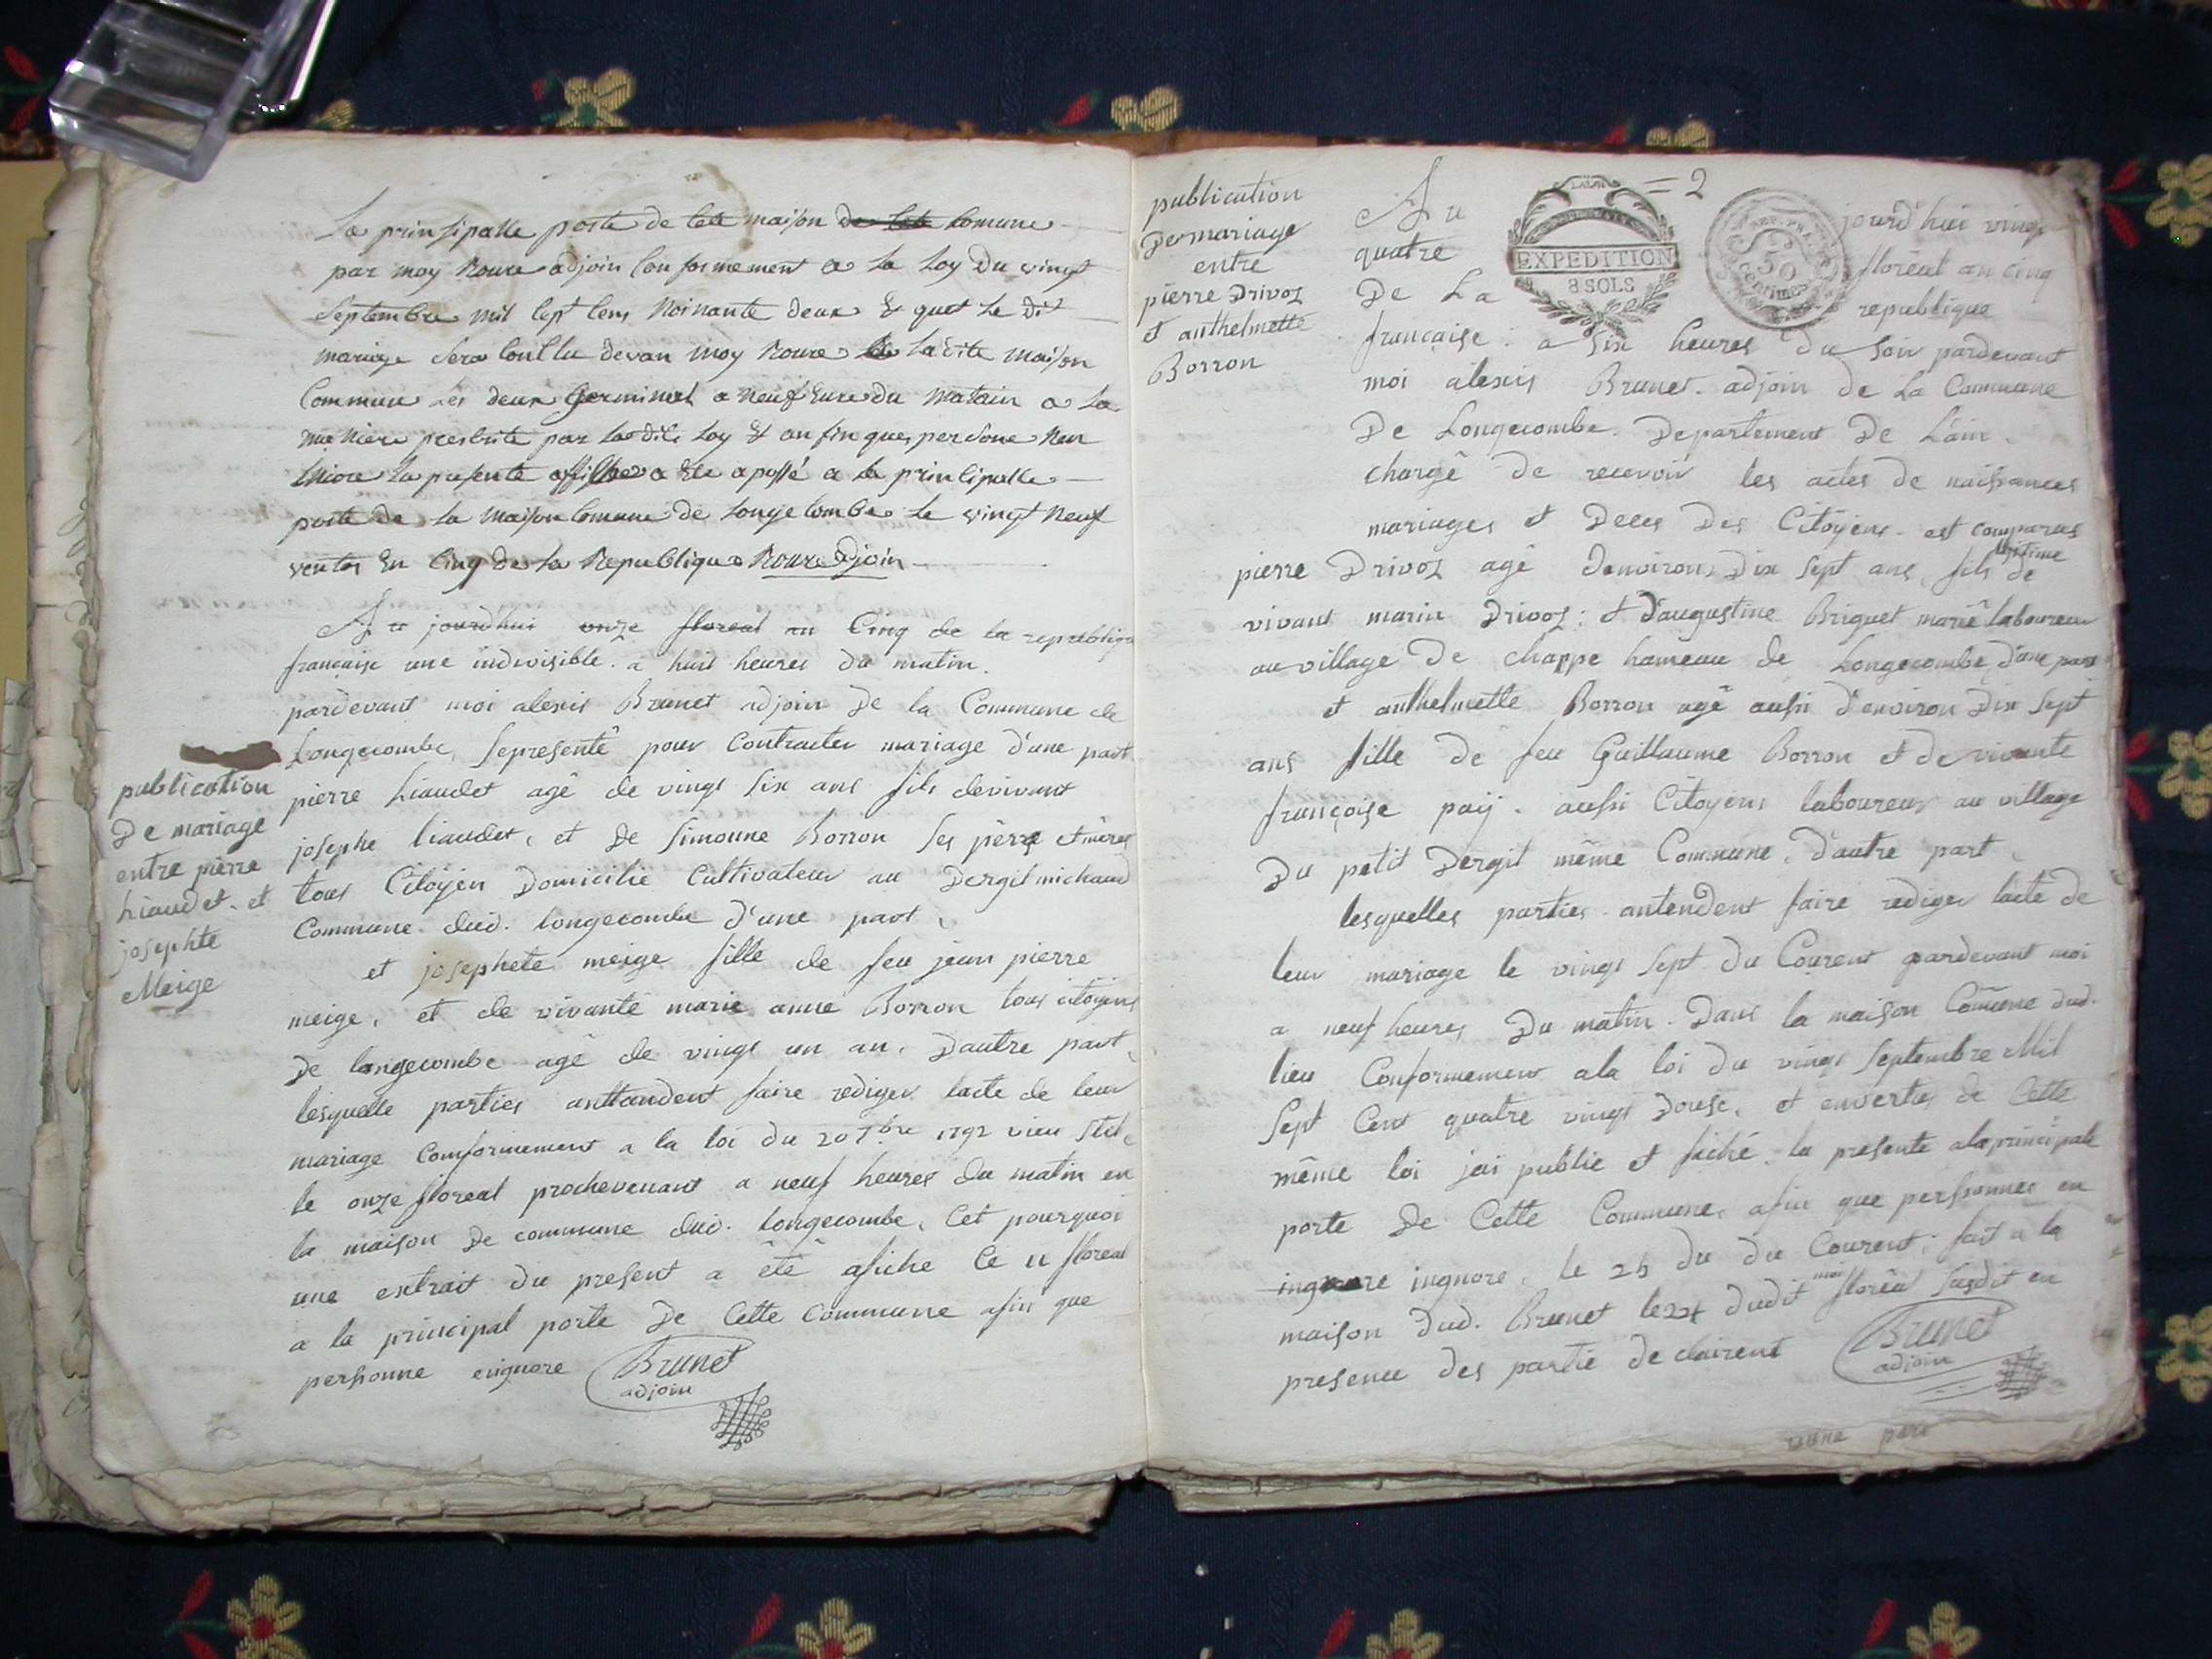 La prinsipalle porte de cete maison de cete Comune
par moy Roux adjoin Conformement a la Loy Du vingt
Septembre mil Sept Cens Noinante deux & quet Le Dit
mariage Sera Conclu devan moy Roux a la dite maison
Commune Les deux Germinal a neuf Eure du Matain a La
maniere prescrite par la dite Loy & anfin que perсone Nen
la presente affiche a Ete aposé a la principalle
porte de La Maison Comune de Longecombe Le vingt Neuf
ventos En Cinq de La Republique Roux Adjoin
Au jourd'hui onze floreal an Cinq de la republique
française une indivisible. a huit heures du matin.
pardevant moi alexis Brunet adjoin De la Commune de
Longecombe, Se presentê pour Contracter mariage d'une part
pierre Liaudet agê de vingt Six ans fils devivant
josephe liaudet, et De Simoune Borron Ses pères et mères
tous Citoÿen Domicilie Cultivateur au Dergit michaud
Commune dud. longecombe D'une part,
et josephete meige fille de feu jean pierre
meige, et de vivante marie anne Borron tous citoÿens
De longecombe agê de vingt un an. Dautre part,
lesquelle parties anttandent faire rediger lacte de leur
mariage Conformement a la loi du 20 7bre 1792 vieu Stile
le onze floreal prochevenant a neuf heures du matin en
la maison De commune dud. longecombe, Cet pourquoi
une extrait du present a êtê afiche Ce 11 floreal
a la principal porte De Cette Commune afin que
personne enignore Brunet
adjoin
publication
De mariage
entre pierre
Liaudet. et
josephte
Meige
publication
De mariage
entre
pierre Drivoz
et anthelmette
Borron
= 2
EXPEDITION
8 SOLS
50
Centimes
Au jourd'hui vingt
quatre florëal an cinq
De La republique
française: a Six heures du Soir pardevant
moi alexis Brunet. adjoin de La Commune
De Longecombe. Departement De L'ain.
chargê de recevoir les actes de naissances
mariages et Deces Des Citoÿens. est comparus
pierre Drivoz agê Denviron Dix Sept ans, fils legitime de
vivant marin Drivoz: et D'augustine Briguet mariê laboureur
au village De chappe hameau de Longecombe, d'une part
et anthelmette Borron agê aussi D'environ Dix Sept
ans fille de feu Guillaume Borron et de vivante
françoise paÿ. aussi Citoÿens laboureur au village
Du petit Dergit même Commune, D'autre part,
lesquelles parties antendent faire rediger lacte de
leur mariage le vingt Sept du Courent pardevant moi
a neuf heures Du matin. Dans la maison Comune dud.
lieu Conformement ala loi du vingt Septembre Mil
Sept Cent quatre vingt Douse, et envertus de Cette
même loi jai publie et fichê la presente ala principale
porte De Cette Commune, afin que personnes en
ingnore ingnore, le 25 du du Courent; fait a la
maison dud. Brunet le 24 dudit moi florêal Susdit en
presence des partie declairent Brunet
adjoin